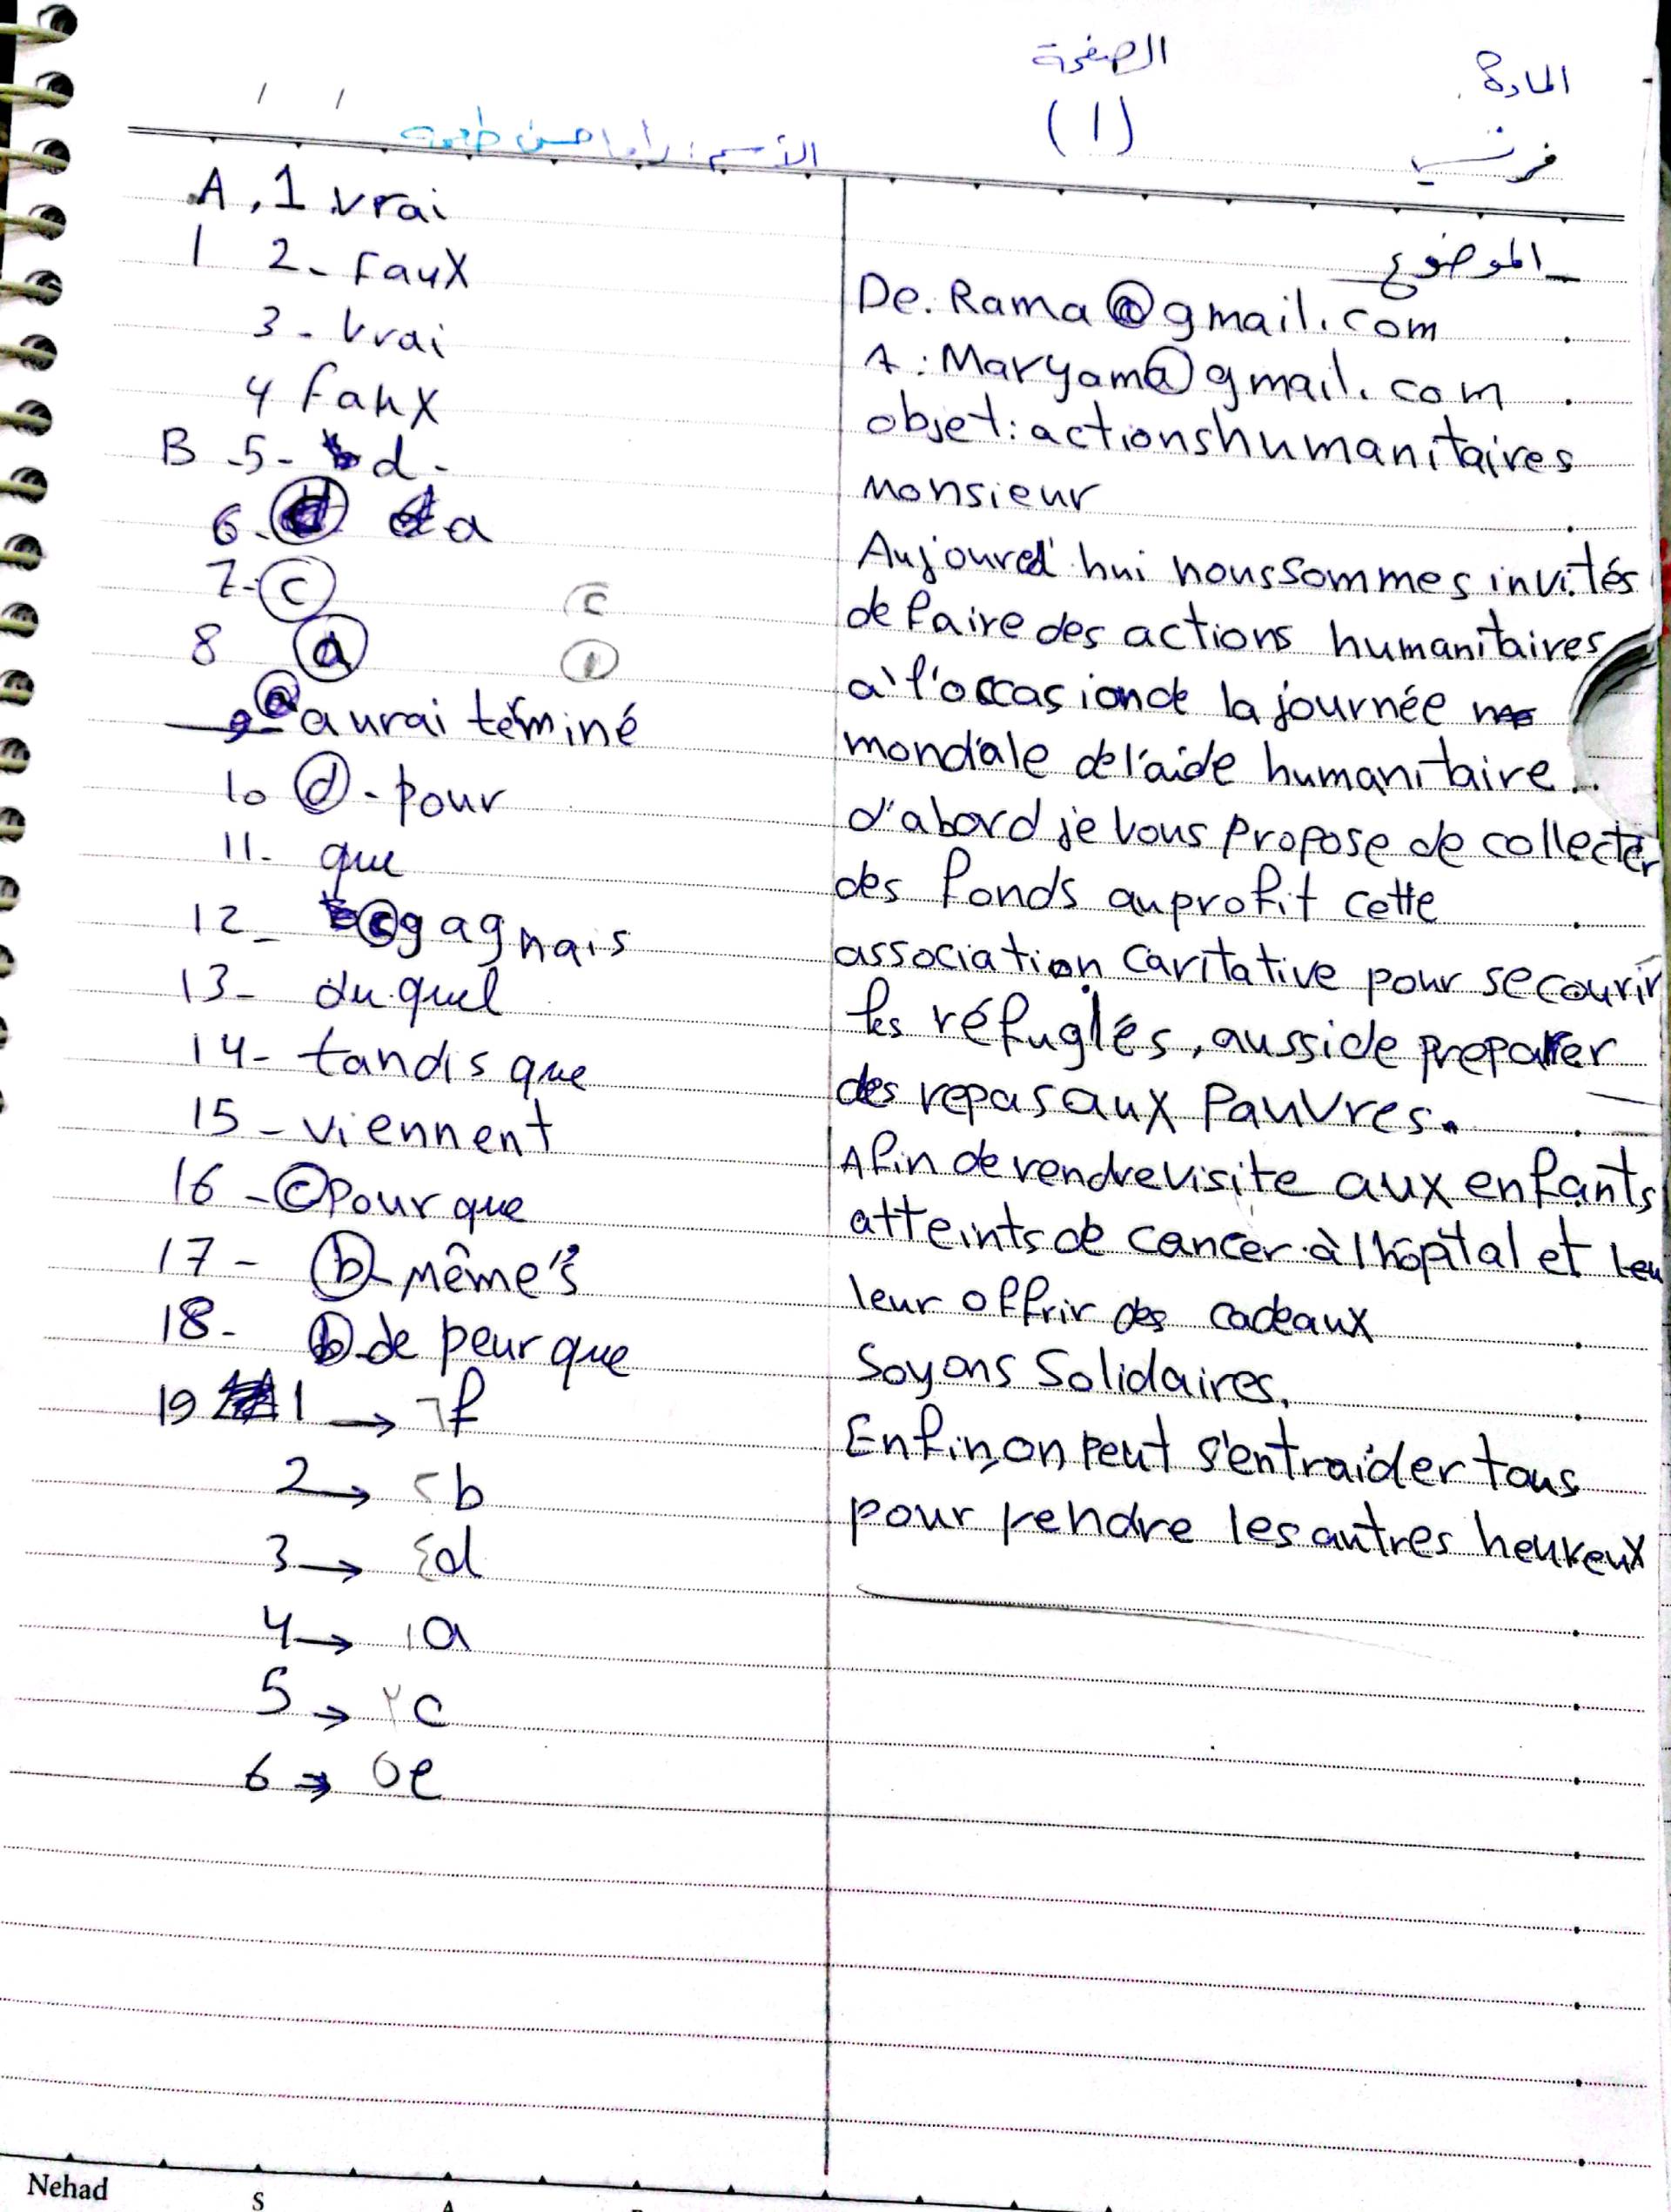 المادة
فرنسي
الصفحة
(1)
الاسم: راما حسن طعمة
/ /
A, 1 vrai
1 2- faux
3- vrai
4 faux
B -5- d-
6- a
7- c
c
8 a
a
9- a aurai términé
10 d - pour
11- que
12- c gagnais
13- duquel
14- tandis que
15- viennent
16- c Pour que
17- b- même's
18- b- de peur que
19 1 → ٦ f
2 → ٢ b
3 → ٤ d
4 → ١ a
5 → ٣ c
6 → ٥ e
الموضوع
De. Rama@gmail.com
A: Maryam@gmail.com
objet: actions humanitaires
Monsieur
Aujoured'hui nous sommes invités
de faire des actions humanitaires
à l'occasion de la journée
mondiale de l'aide humanitaire.
d'abord je vous propose de collecter
des fonds au profit cette
association caritative pour secourir
les réfugiés, aussi de preparer
des repas aux Pauvres.
Afin de rendre visite aux enfants
atteints de cancer à l'hôpital et leu
leur offrir des cadeaux
Soyons Solidaires.
Enfin, on peut s'entraider tous
pour rendre les autres heureux
Nehad
S
A